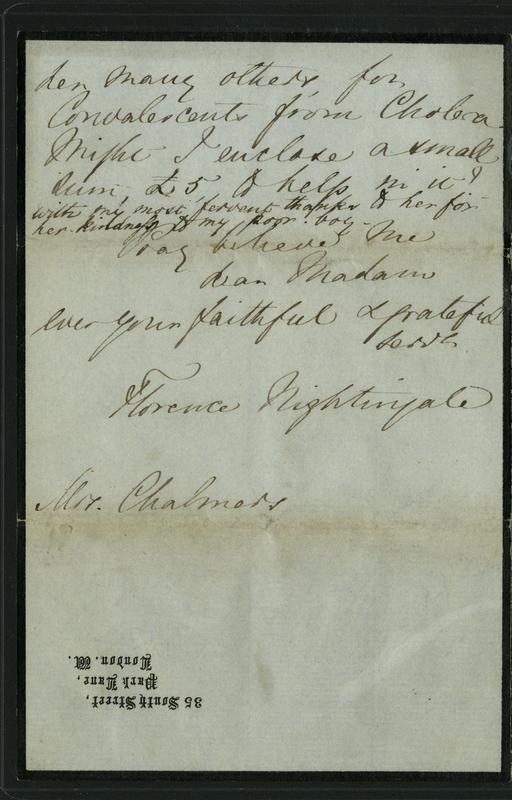 den many others for
Convalescents from Cholera.
Might I enclose a small
sum £5 to help in it?
with my most fervent thanks to her for
her kindness to my poor boy -
Pray believe me
dear Madam
ever your faithful & grateful
servt
Florence Nightingale
Mrs. Chalmers
35 South Street,
Park Lane,
London. W.